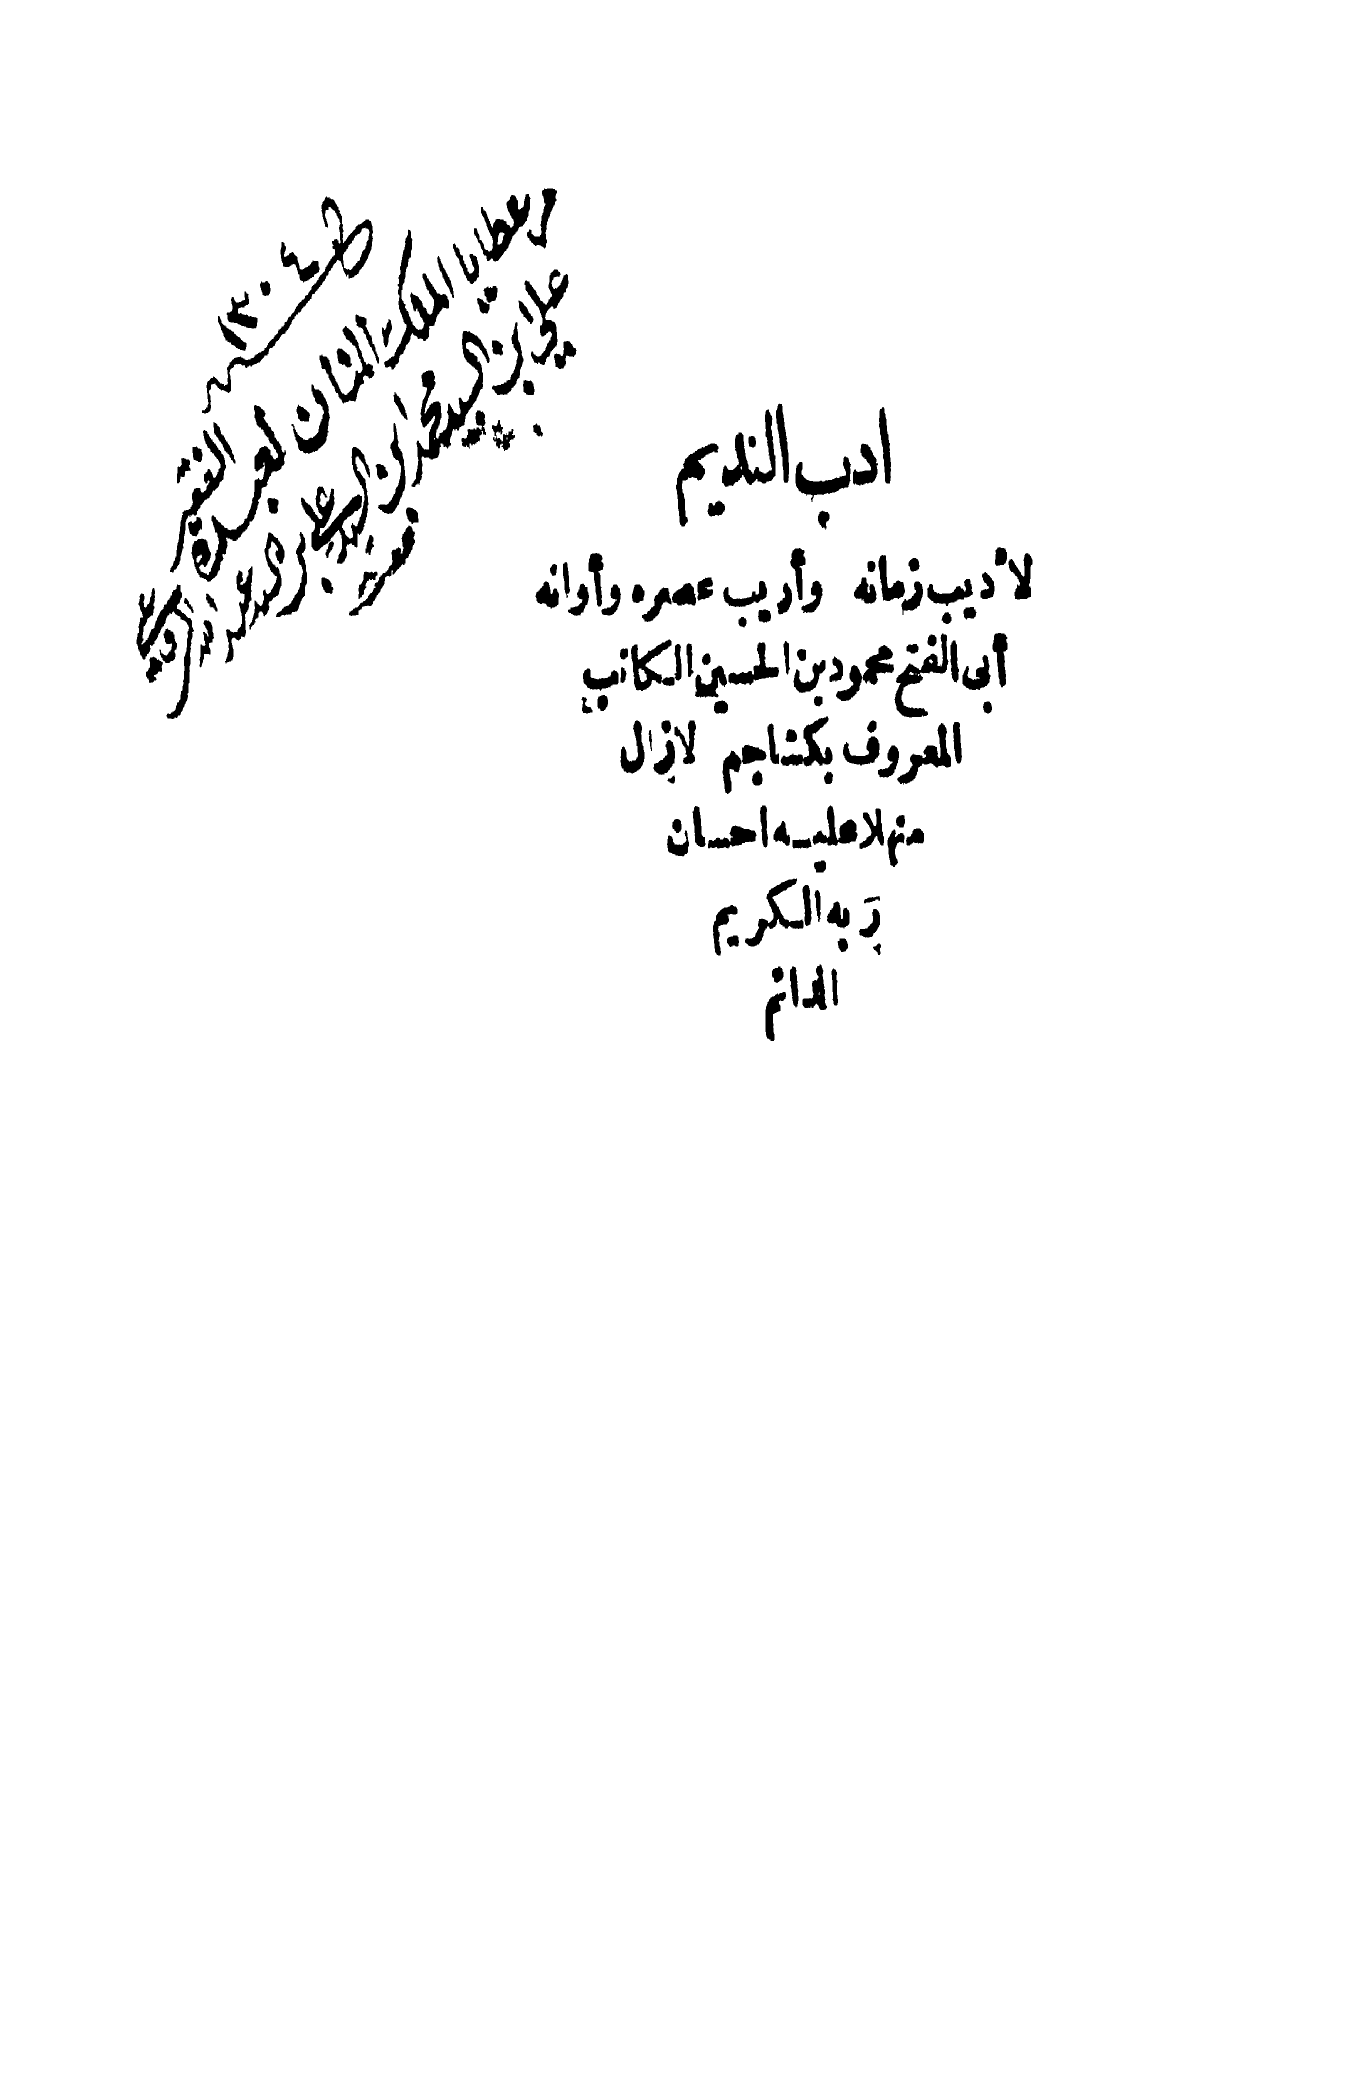 من عطايا الملك المنان لعبده الفقير
علي بن السيد محمد بن السيد علي بن السيد
١٣٠٤
ادب النديم
لأديب زمانه وأريب عصره وأوانه
أبى الفتح محمود بن الحسين الكاتب
المعروف بكشاجم لازال
منهلا عليه احسان
ربه الكريم
الدائم